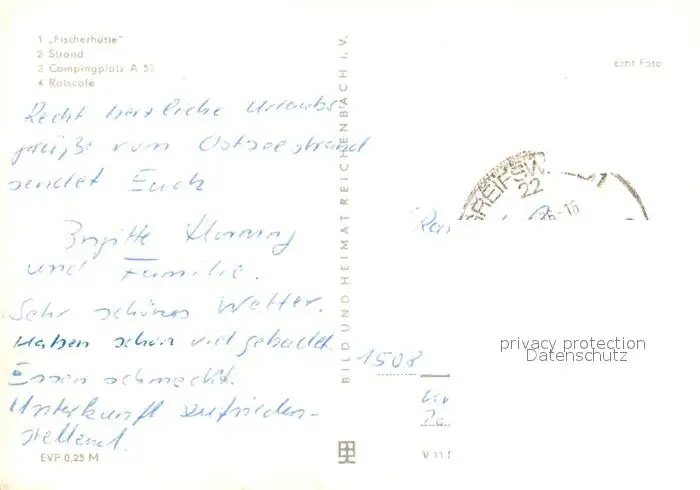 1 „Fischerhütte"
2 Strand
3 Campingplatz A 52
4 Ratscafé
Echt Foto
Recht herzliche Urlaubs-
grüße vom Ostseestrand
sendet Euch
Brigitte
und Familie.
Sehr schönes Wetter.
Haben schon viel gebadet.
Essen schmeckt.
Unterkunft zufrieden-
stellend.
EVP 0,25 M
BILD UND HEIMAT REICHENBACH i. V.
GREIFSW.
22
-16
privacy protection
Datenschutz
1508
V 11